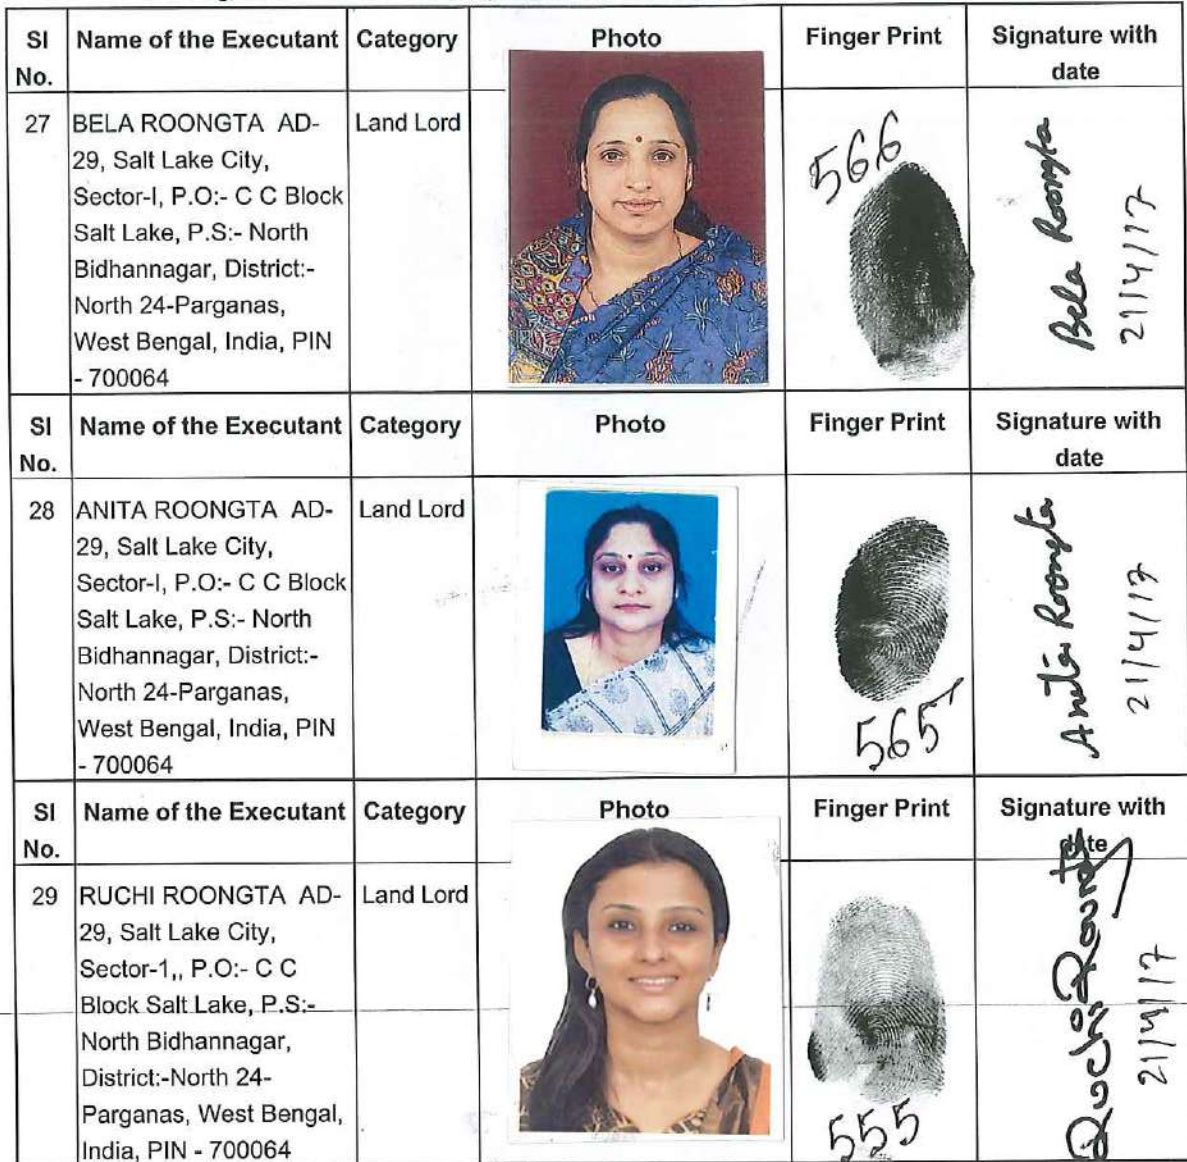 SI Name of the Executant Category Photo Finger Print Signature with
No. date
27 BELA ROONGTA AD- Land Lord
29, Salt Lake City,
Sector-I, P.O:- C C Block
Salt Lake, P.S:- North
Bidhannagar, District:-
North 24-Parganas,
West Bengal, India, PIN
- 700064
566
Bela Roongta
21/4/17
SI Name of the Executant Category Photo Finger Print Signature with
No. date
28 ANITA ROONGTA AD- Land Lord
29, Salt Lake City,
Sector-I, P.O:- C C Block
Salt Lake, P.S:- North
Bidhannagar, District:-
North 24-Parganas,
West Bengal, India, PIN
- 700064
565
Anita Roongta
21/4/17
SI Name of the Executant Category Photo Finger Print Signature with
No. date
29 RUCHI ROONGTA AD- Land Lord
29, Salt Lake City,
Sector-1,, P.O:- C C
Block Salt Lake, P.S:-
North Bidhannagar,
District:-North 24-
Parganas, West Bengal,
India, PIN - 700064
555
Ruchi Roongta
21/4/17